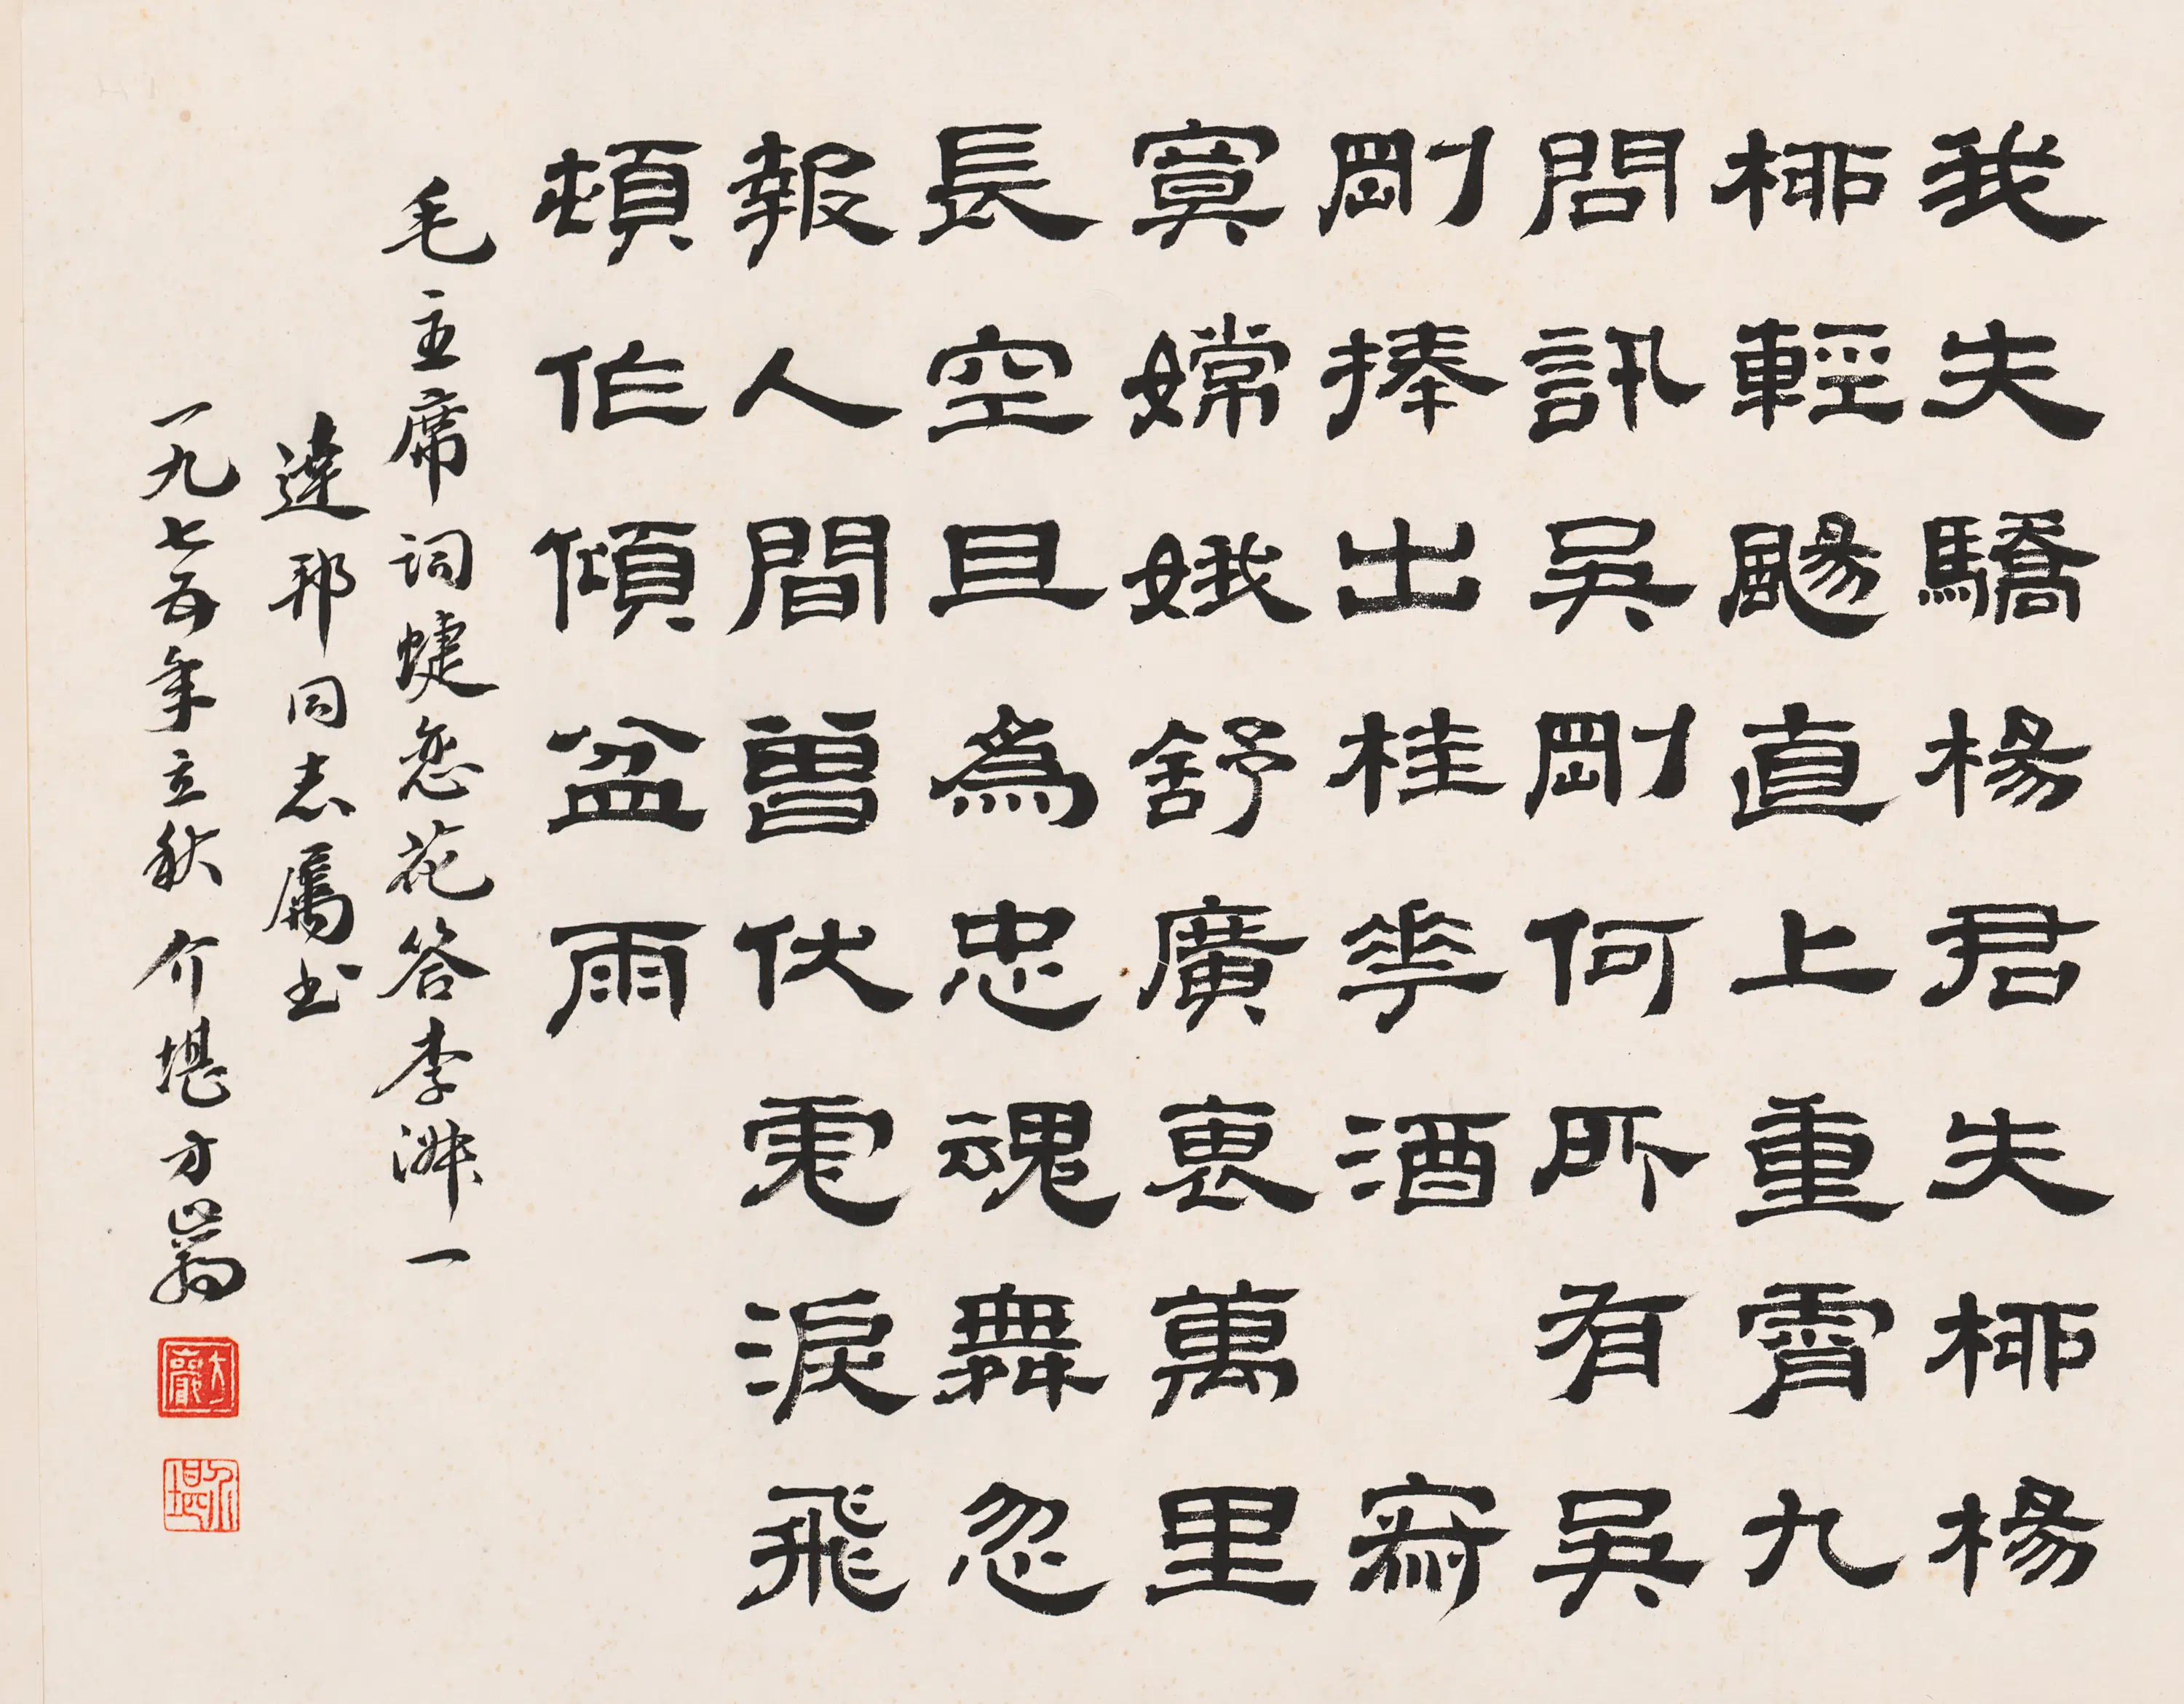 我失驕楊君失桺楊
桺輕颺直上重霄九
問訊吳剛何所有吳
剛捧出桂華酒 寂
寞嫦娥舒廣裏萬里
長空且為忠魂舞忽
報人間曾伏虎淚飛
頓作傾盆雨
毛主席詞蝶恋花答李淑一
達邦同志屬书
一九七五年立秋 介堪方巖
方巖
介堪